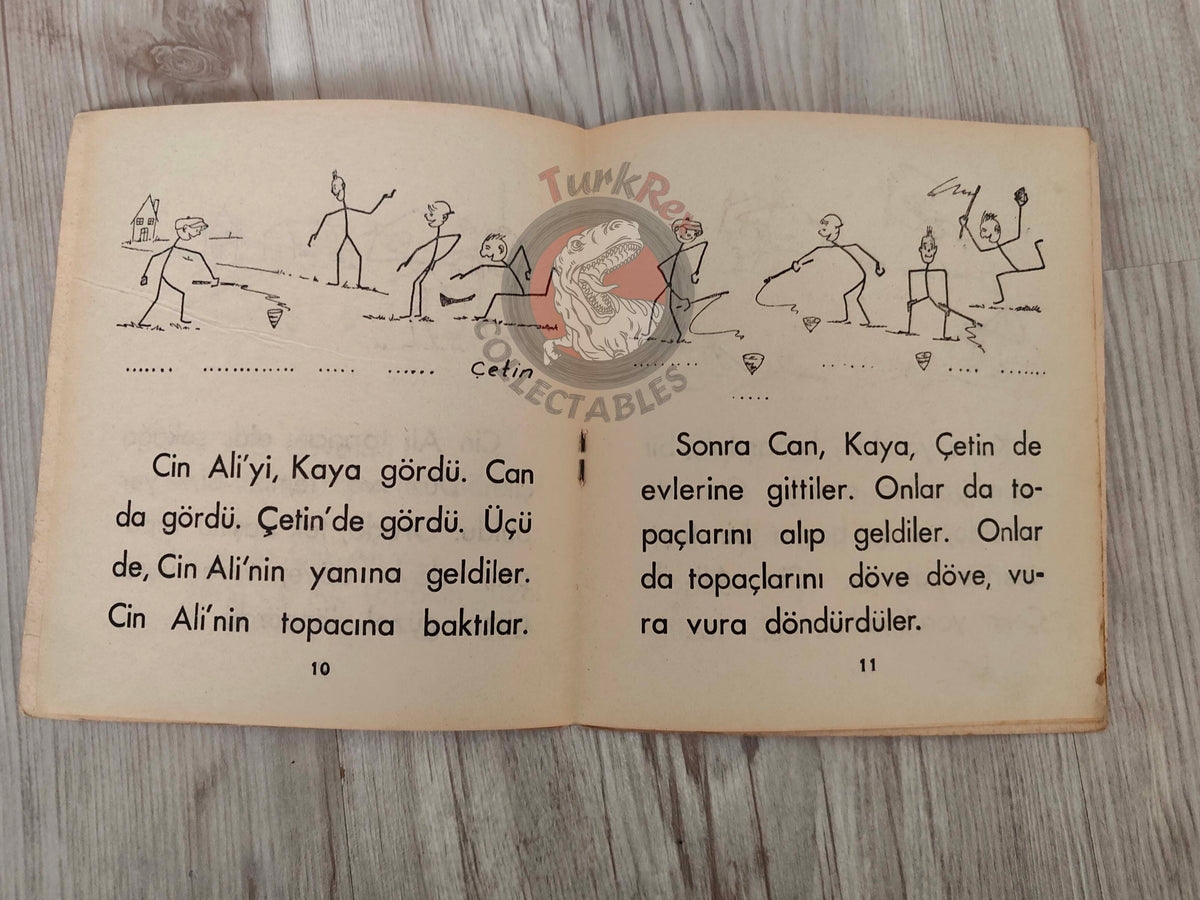 Çetin
Cin Ali'yi, Kaya gördü. Can
da gördü. Çetin'de gördü. Üçü
de, Cin Ali'nin yanına geldiler.
Cin Ali'nin topacına baktılar.
10
Sonra Can, Kaya, Çetin de
evlerine gittiler. Onlar da to-
paçlarını alıp geldiler. Onlar
da topaçlarını döve döve, vu-
ra vura döndürdüler.
11
TurkRex
COLLECTABLES